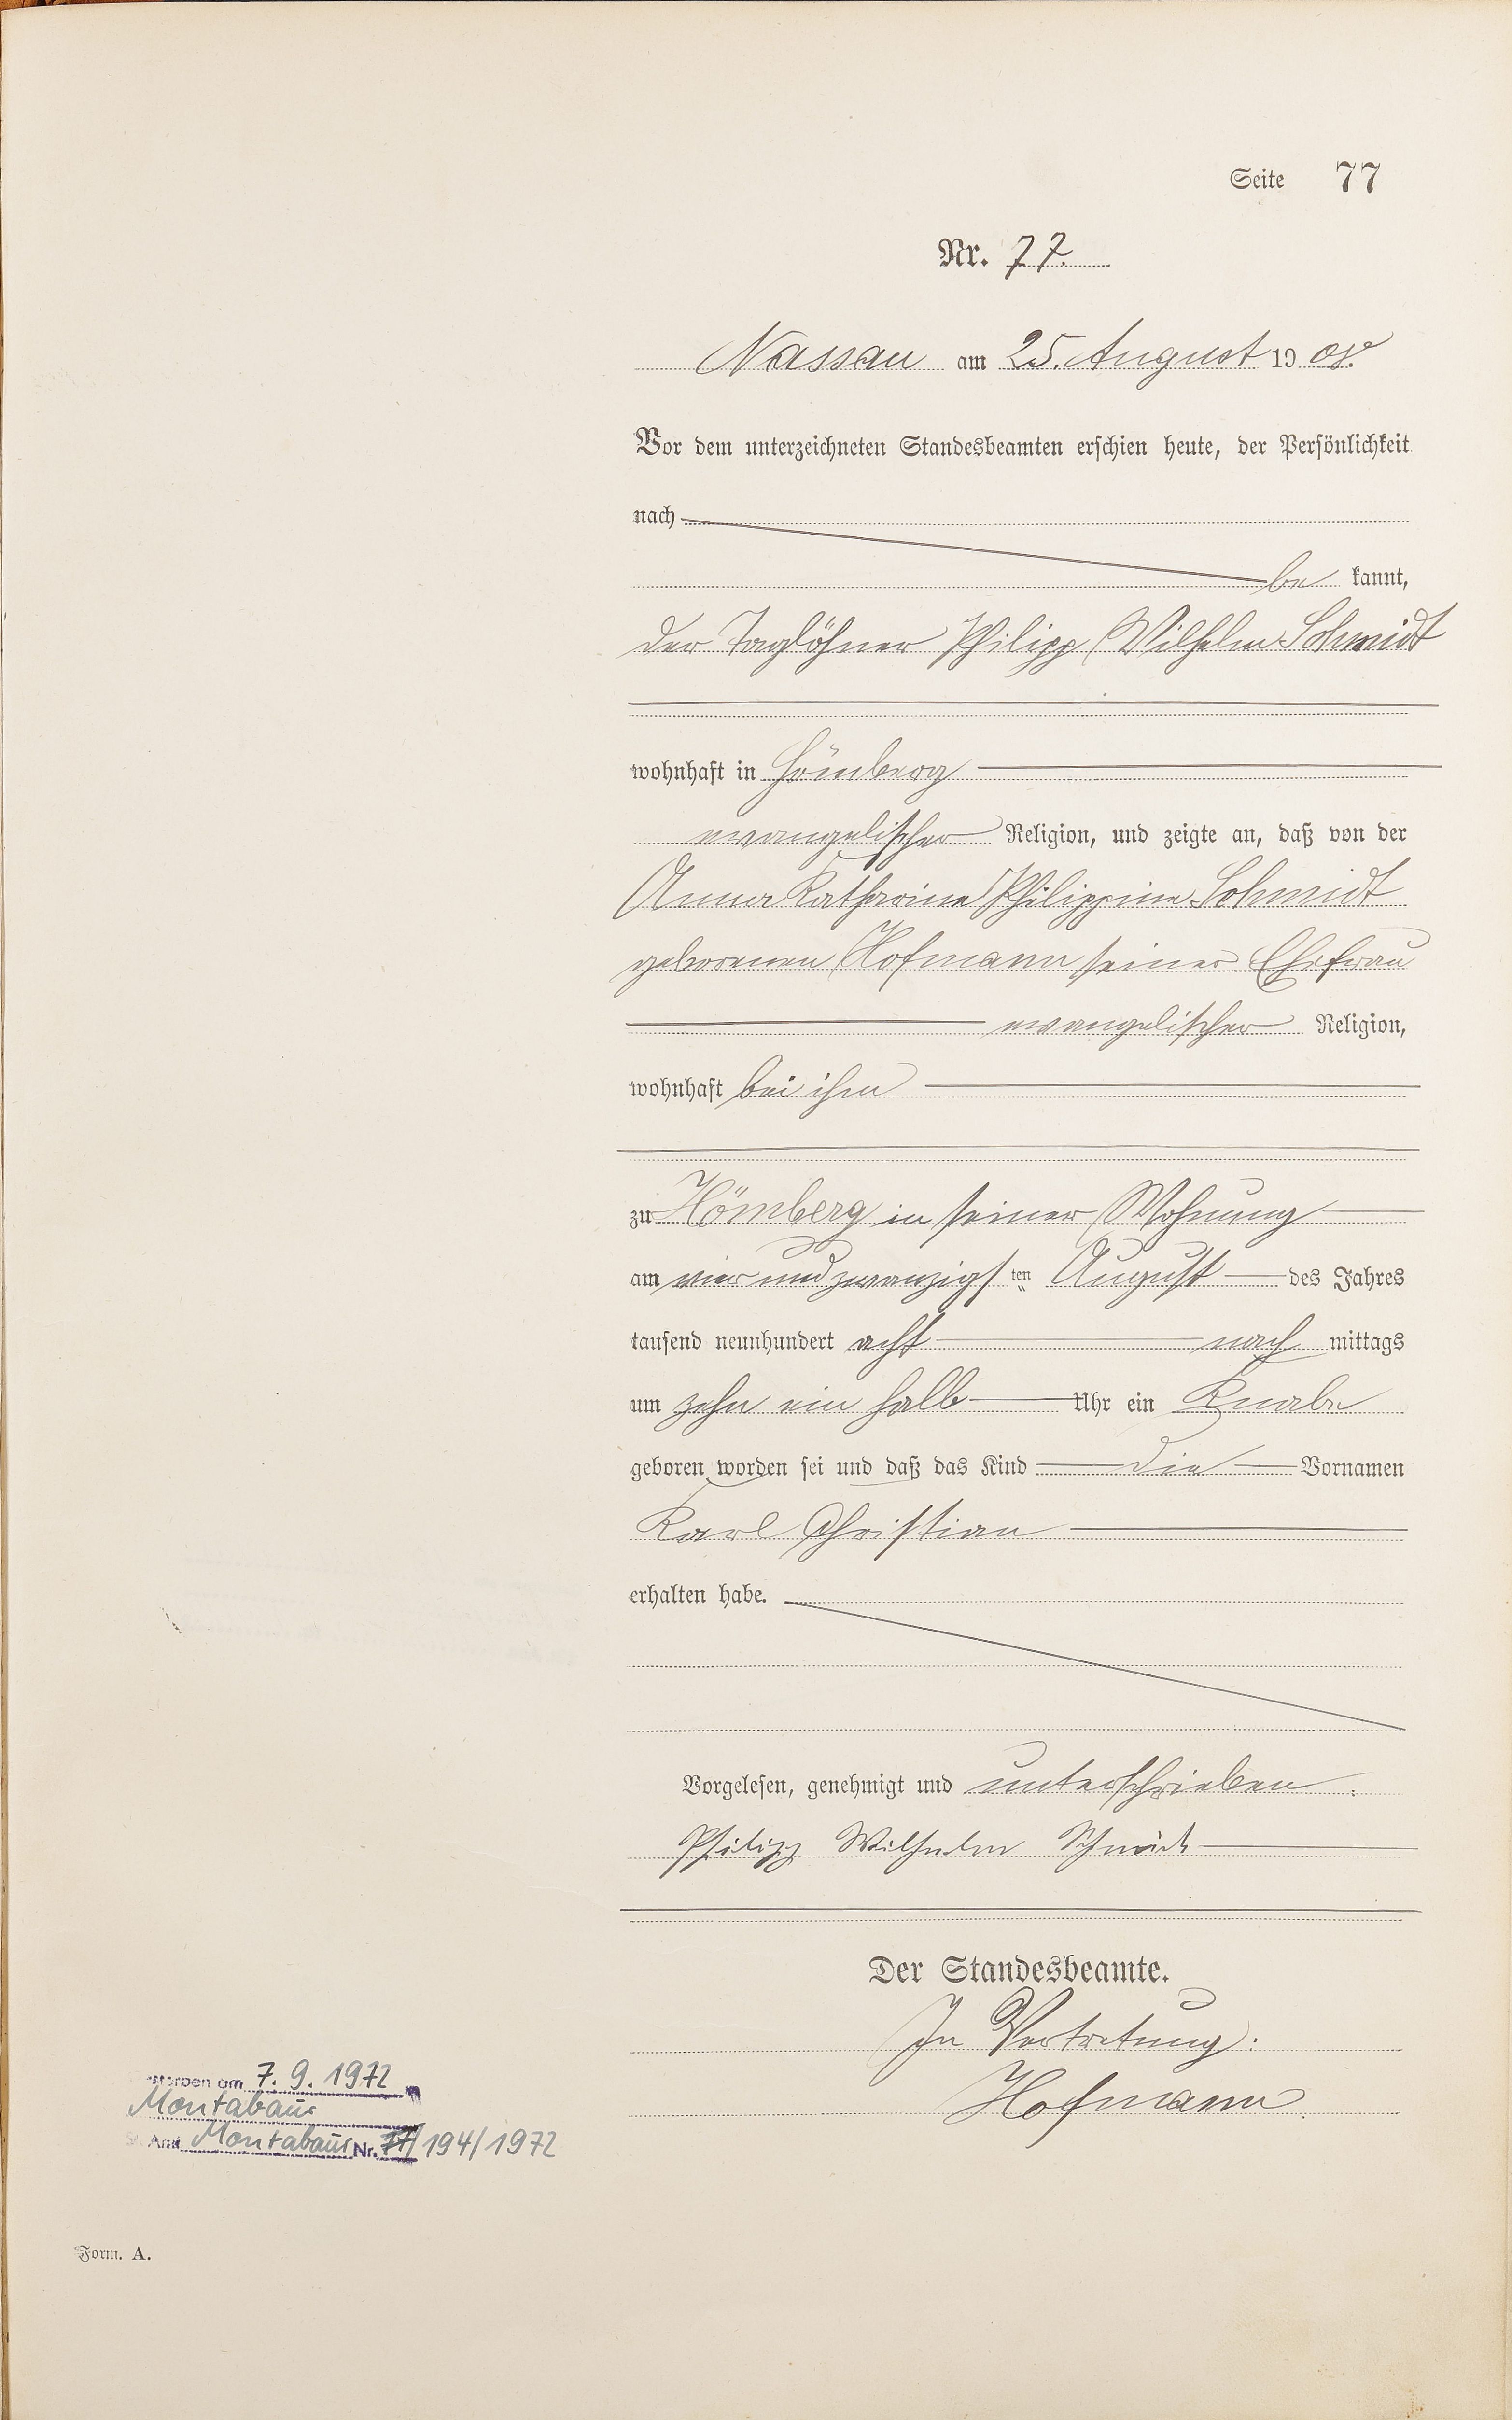 Seite 77
Nr. 77.
Nassau am 25. August 19 08.
Vor dem unterzeichneten Standesbeamten erschien heute, der Persönlichkeit
nach
be kannt,
der Taglöhner Philipp Wilhelm Schmidt
wohnhaft in Hömberg
evangelischer Religion, und zeigte an, daß von der
Anna Katharina Philippine Schmidt
geborenen Hofmann seiner Ehefrau
evangelischer Religion,
wohnhaft bei ihm
zu Hömberg in seiner Wohnung
am vier und zwanzigsten August des Jahres
tausend neunhundert acht nach mittags
um zehn ein halb Uhr ein Knabe
geboren worden sei und daß das Kind die Vornamen
Karl Christian
erhalten habe.
Vorgelesen, genehmigt und unterschrieben.
Philipp Wilhelm Schmidt
Der Standesbeamte.
In Vertretung:
Hofmann
storben am 7. 9. 1972
Montabaur
St. Amt Montabaur Nr. 77/194/1972
Form. A.